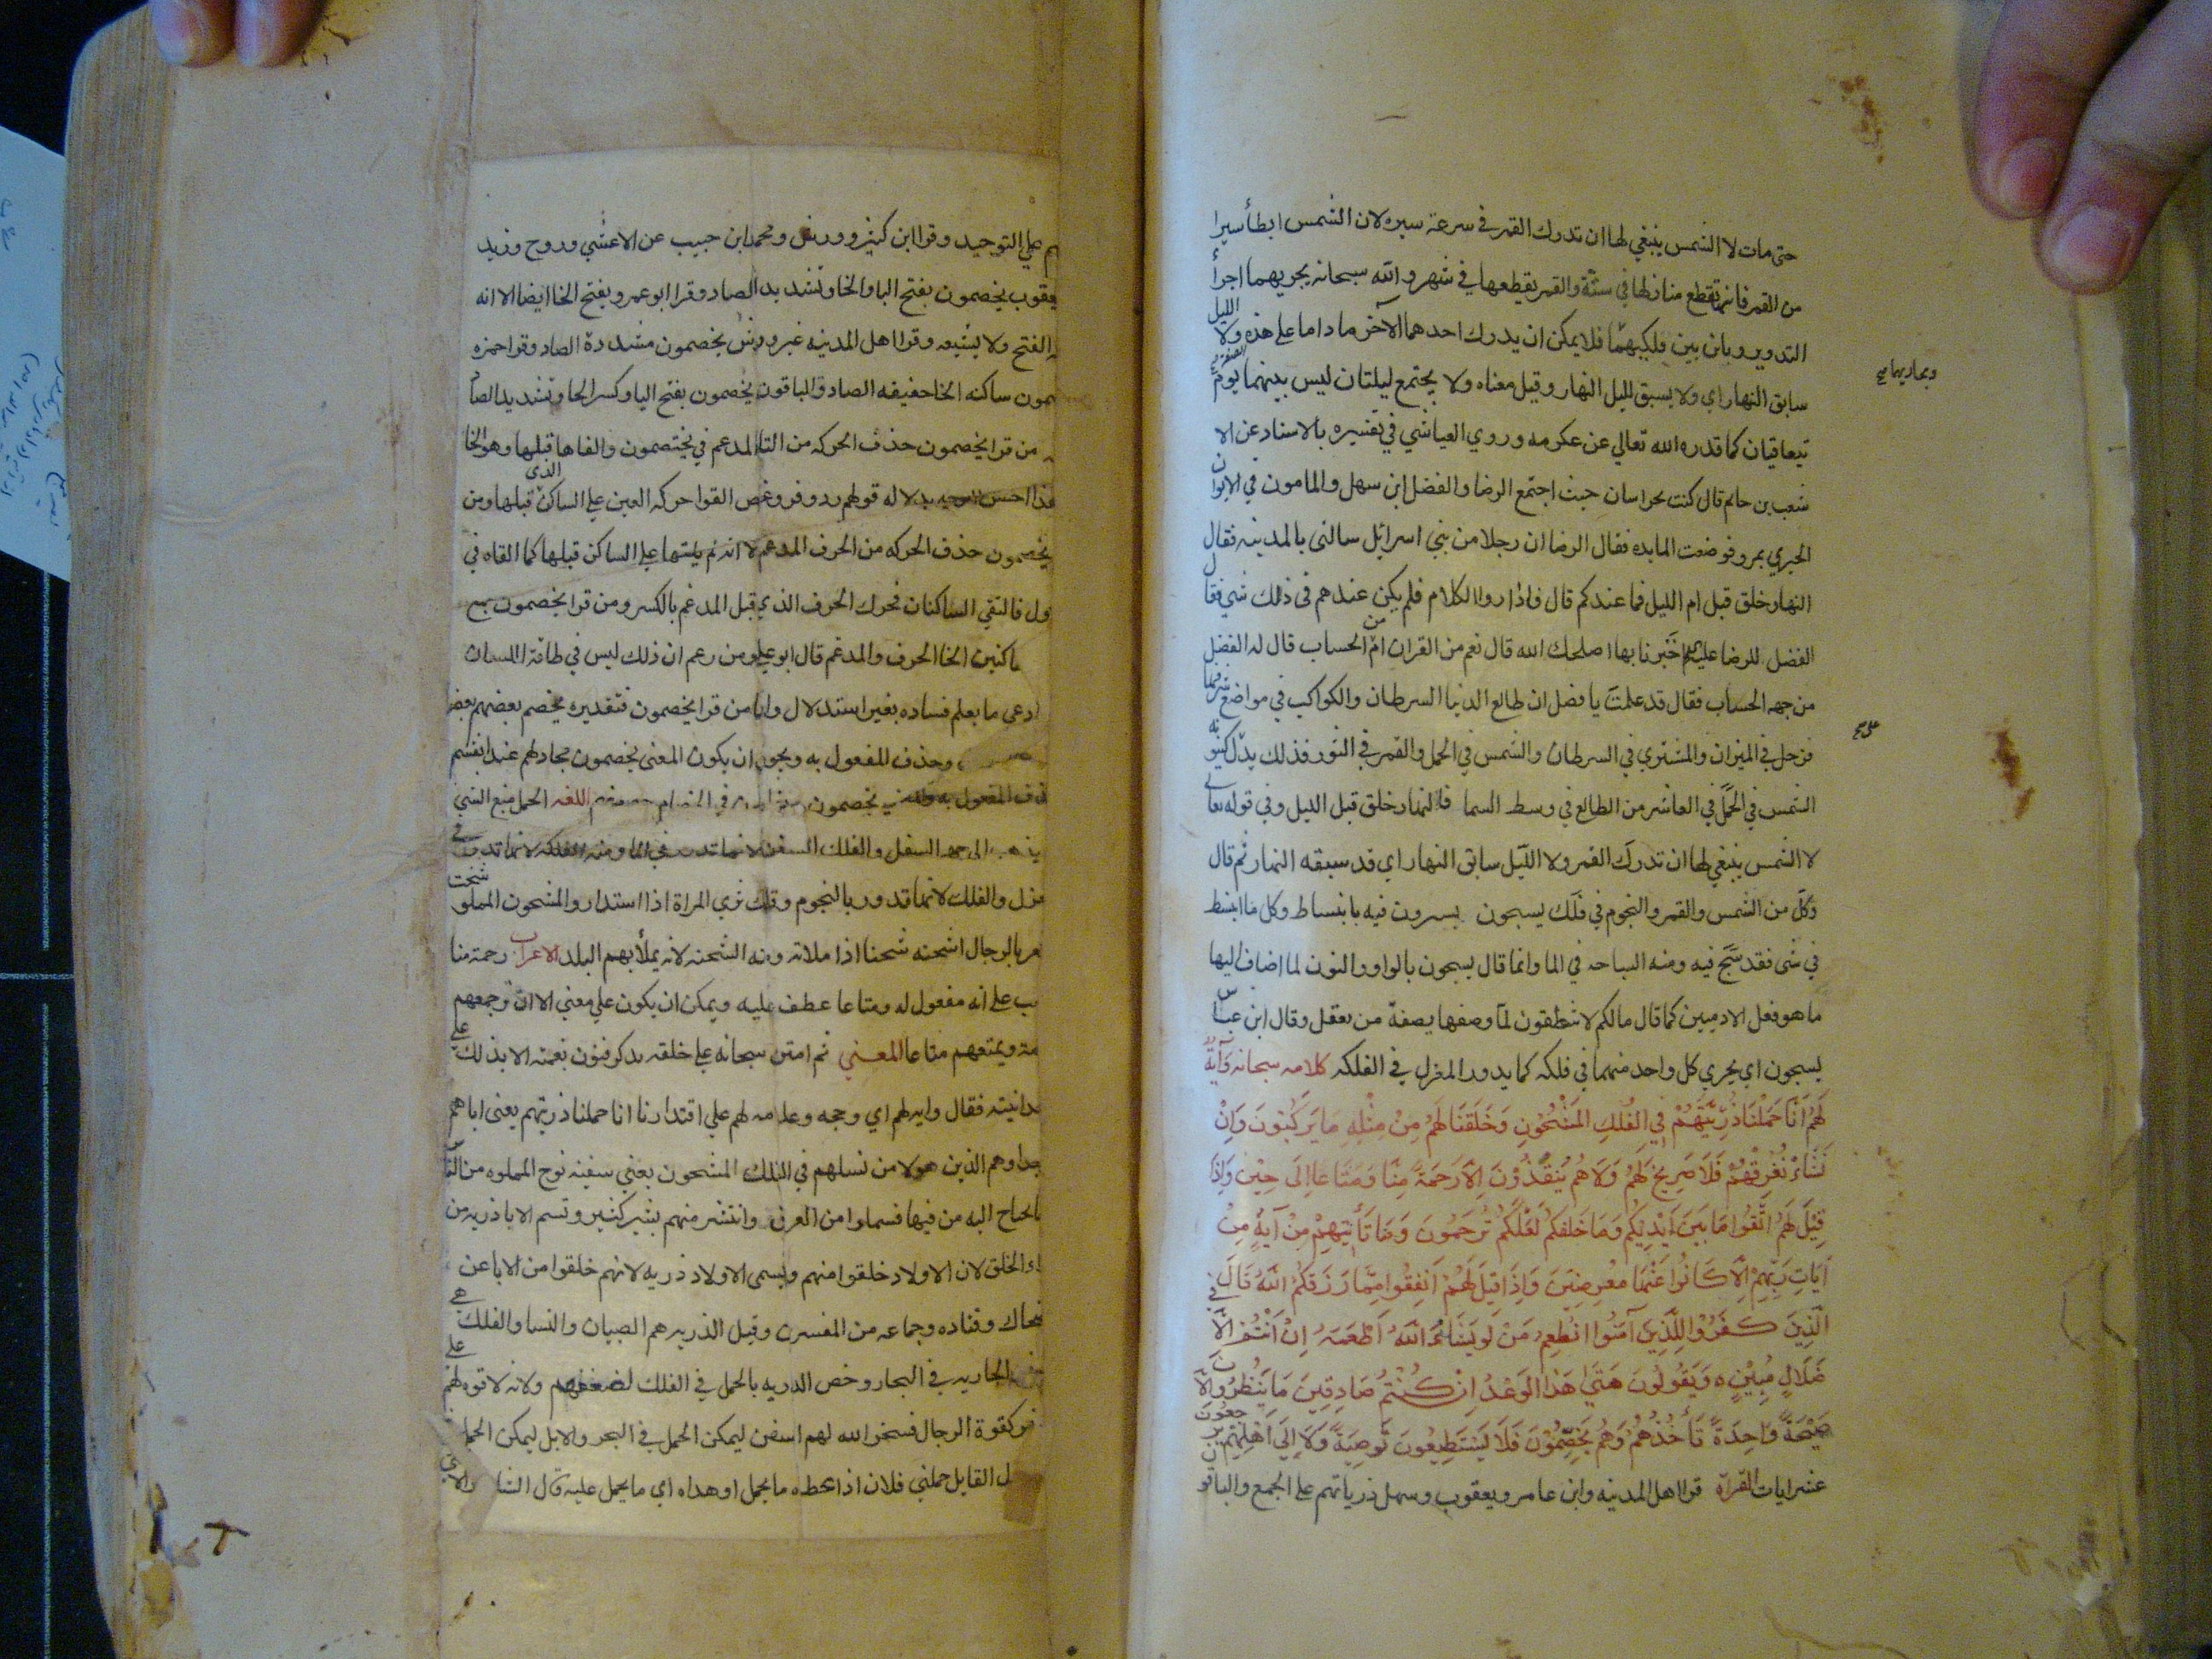 حتى مات لا الشمس ينبغي لها ان تدرك القمر في سرعة سيره لان الشمس ابطأ سيرا
من القمر فانها تقطع منازلها في سنة والقمر يقطعها في شهر و الله سبحانه يجريهما اجرأ
التدوير و باين بين فلكيهما فلا يمكن ان يدرك احدهما الآخر ما داما على هذه ولا الليل
سابق النهار اي ولا يسبق الليل النهار وقيل معناه ولا يجتمع ليلتان ليس بينهما يوم
يتعاقبان كما قدره الله تعالي عن عكرمه وروي العياشي في تفسيره بالاسناد عن الا
شعب بن حاتم قال كنت بخراسان حيث اجتمع الرضا والفضل ابن سهل والمامون في الايوان
الحبري بمرو فوضعت المايده فقال الرضا ان رجلا من بني اسرائل سالنى بالمدينه فقال
النهار خلق قبل ام الليل فما عندكم قال فاذاروا الكلام فلم يكن عندهم فى ذلك شي فقال
الفضل للرضا عليلم اخبرنا بها اصلحك الله قال نعم من القران ام من الحساب قال له الفضل
من جهه الحساب فقال قد علمت يا فضل ان طالع الدنيا السرطان والكواكب في مواضع شرفها
فزحل في الميزان والمشتري في السرطان والشمس في الحمل والقمر في الثور فذلك يدل كينونه
الشمس في الحمل في العاشر من الطالع في وسط السما فالنهار خلق قبل الليل وفي قوله تعالى
لا الشمس ينبغي لها ان تدرك القمر ولا الليل سابق النهار اي قد سبقه النهار ثم قال
وكل من الشمس والقمر والنجوم في فلك يسبحون يسيرون فيه بانبساط وكل ما انبسط
في شى فقد سبح فيه ومنه السباحه في الما وانما قال يسبحون بالواو والنون لما اضاف اليها
ما هو فعل الادميين كما قال مالكم لا تنطقون لما وصفها بصفة من يعقل وقال ابن عباس
يسبحون اي يجري كل واحد منهما في فلكه كما يدور المغزل في الفلكه كلامه سبحانه وآية
لَهُمْ اَنَّا حَمَلْنَا ذُرِّيَّتَهُمْ فِي الْفُلْكِ الْمَشْحُونِ وَخَلَقْنَا لَهُمْ مِنْ مِثْلِهِ مَا يَرْكَبُونَ وَاِنْ
نَشَاءْ نُغْرِقْهُمْ فَلَا صَرِيخَ لَهُمْ وَلَا هُمْ يُنْقَذُوْنَ اِلَّا رَحْمَةً مِنَّا وَمَتَاعًا اِلَى حِيْنٍ وَاِذَا
قِيْلَ لَهُمُ اتَّقُوا مَا بَيْنَ اَيْدِيْكُمْ وَمَا خَلْفَكُمْ لَعَلَّكُمْ تُرْحَمُونَ وَمَا تَأْتِيْهِمْ مِنْ آيَةٍ مِنْ
آيَاتِ رَبِّهِمْ اِلَّا كَانُوا عَنْهَا مُعْرِضِيْنَ وَاِذَا قِيْلَ لَهُمْ اَنْفِقُوا مِمَّا رَزَقَكُمُ اللهُ قَالَ
الَّذِيْنَ كَفَرُوْا لِلَّذِيْنَ آمَنُوا اَنُطْعِمُ مَنْ لَوْ يَشَاءُ اللهُ اَطْعَمَهُ اِنْ اَنْتُمْ اِلَّا في
ضَلَالٍ مُبِيْنٍ وَيَقُولُونَ مَتَى هَذَا الْوَعْدُ اِنْ كُنْتُمْ صَادِقِيْنَ مَا يَنْظُرُونَ اِلَّا
صَيْحَةً وَاحِدَةً تَأْخُذُهُمْ وَهُمْ يَخِصِّمُوْنَ فَلَا يَسْتَطِيْعُونَ تَوْصِيَةً وَلَا اِلَى اَهْلِهِمْ يرجعون
عشر ايات القراة قرا اهل المدينه وابن عامر ويعقوب وسهل ذرياتهم على الجمع والباقون
هم على التوحيد وقرا ابن كثير وورش ومحمد ابن حبيب عن الاعشي وروح وزيد
يعقوب يخصمون بفتح اليا والخا وتشديد الصاد وقرا ابو عمرو بفتح الخا ايضا الا انه
الفتح ولا يشبعه وقرا اهل المدينه غير ورش يخصمون مشددة الصاد وقرا حمزه
يخصمون ساكنه الخا خفيفه الصاد والباقون يخصمون بفتح اليا وكسر الخا وتشديد الصاد
من قرا يخصمون حذف الحركه من التا المدغم في يختصمون والقاها قبلها وهو الخا
هذا احسن الوجوه بدلاله قولهم رد وفر وغض القوا حركه العين على الساكن الذى قبلها ومن
يخصمون حذف الحركه من الحرف المدغم الا انه لم يلقها على الساكن قبلها كما القاه في
ول فالتقي الساكنان فحرك الحرف الذي قبل المدغم بالكسر ومن قرا يخصمون جمع
ساكنين الخا الحرف والمدغم قال ابو علي ومن زعم ان ذلك ليس في طاقة اللسان
ادعى ما يعلم فساده بغير استدلال واما من قرا يخصمون فتقديره يخصم بعضهم بعضا
وحذف المفعول به ويجوز ان يكون المعنى يخصمون مجادلهم عند انفسهم
المفعول به يخصمون اللغه الحمل منع الشي
يذهب الى جهه السفل والفلك السفن لانها تدور في الما ومنه الفلكه لانها تدور في
مغزل والفلك لانها تدور بالنجوم وفلك ثدي المراة اذا استدار والمشحون المملو شحنت
بالرجال اشحنه شحنا اذا ملاته ومنه الشحنه لانه يملأ بهم البلد الاعراب رحمة منا
على انه مفعول له ومتاعا عطف عليه ويمكن ان يكون علي معني الا ان نرحمهم
رحمة ونمتعهم متاعا المعني ثم امتن سبحانه على خلقه بذكر فنون نعمه الا بذلك على
وحدانيته فقال وايه لهم اي وحجه وعلامه لهم علي اقتدارنا انا حملنا ذريتهم يعنى اباهم
واجدادهم الذين هولا من نسلهم في الفلك المشحون يعني سفينه نوح المملوه من النا
ما يحتاج اليه من فيها فسلموا من الغرق وانتشر منهم بشير كثير وتسم الابا ذريه من
الخلق لان الاولاد خلقوا منهم ويسمى الاولاد ذريه لانهم خلقوا من الابا عن
ضحاك وقتاده وجماعه من المفسرين وقيل الذريه هم الصبيان والنسا والفلك هي
الجاريه في البحار وخص الذريه بالحمل في الفلك لضعفهم ولانه لا قوه لهم على
كقوة الرجال فسخر الله لهم السفن ليمكن الحمل في البحر والابل ليمكن الحمل
القايل حملني فلان اذا اعطاه ما يحمل او هداه اي ما يحمل عليه قال الشا